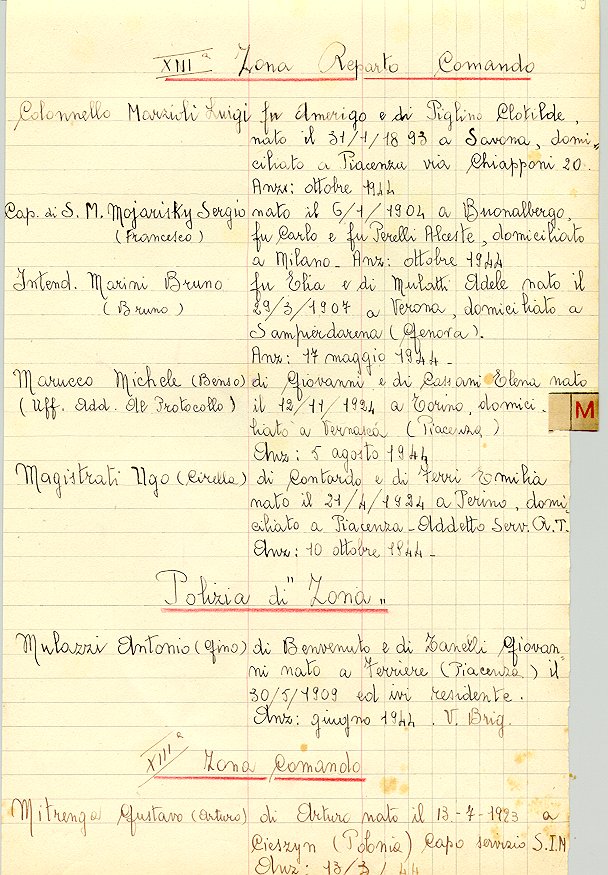 XIIIª Zona Reparto Comando
Colonnello Marzioli Luigi fu Amerigo e di Piglino Clotilde,
nato il 31/1/1893 a Savona, domi-
ciliato a Piacenza via Chiapponi 20.
Anz: ottobre 1944
Cap. di S. M. Mojarisky Sergio nato il 6/1/1904 a Buonalbergo,
(Francesco) fu Carlo e fu Perelli Alceste, domiciliato
a Milano - Anz: ottobre 1944
Intend. Marini Bruno fu Elia e di Mulatti Adele nato il
(Bruno) 29/3/1907 a Verona, domiciliato a
Sampierdarena (Genova).
Anz: 17 maggio 1944 -
Marucco Michele (Benso) di Giovanni e di Cassani Elena nato
(Uff. Add. Al Protocollo) il 12/11/1924 a Torino, domici.
liato a Vernasca (Piacenza)
Anz: 5 agosto 1944
Magistrati Ugo (Cirella) di Contardo e di Ferri Emilia
nato il 21/4/1924 a Perino, domi
ciliato a Piacenza - Addetto Serv. A.T.
Anz: 10 ottobre 1944 -
M
Polizia di "Zona"
Mulazzi Antonio (Gino) di Benvenuto e di Zanelli Giovan
ni nato a Ferriere (Piacenza) il
30/5/1909 ed ivi residente.
Anz: giugno 1944. V. Brig.
XIIIª Zona Comando
Mitrenga Gustavo (Arturo) di Arturo nato il 13-7-1923 a
Cieszyn (Polonia) Capo servizio S.I.M
Anz: 13/3/44